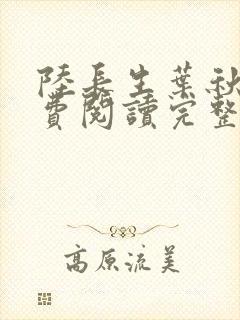 陸長生葉秋
費閱讀完整
高原流美